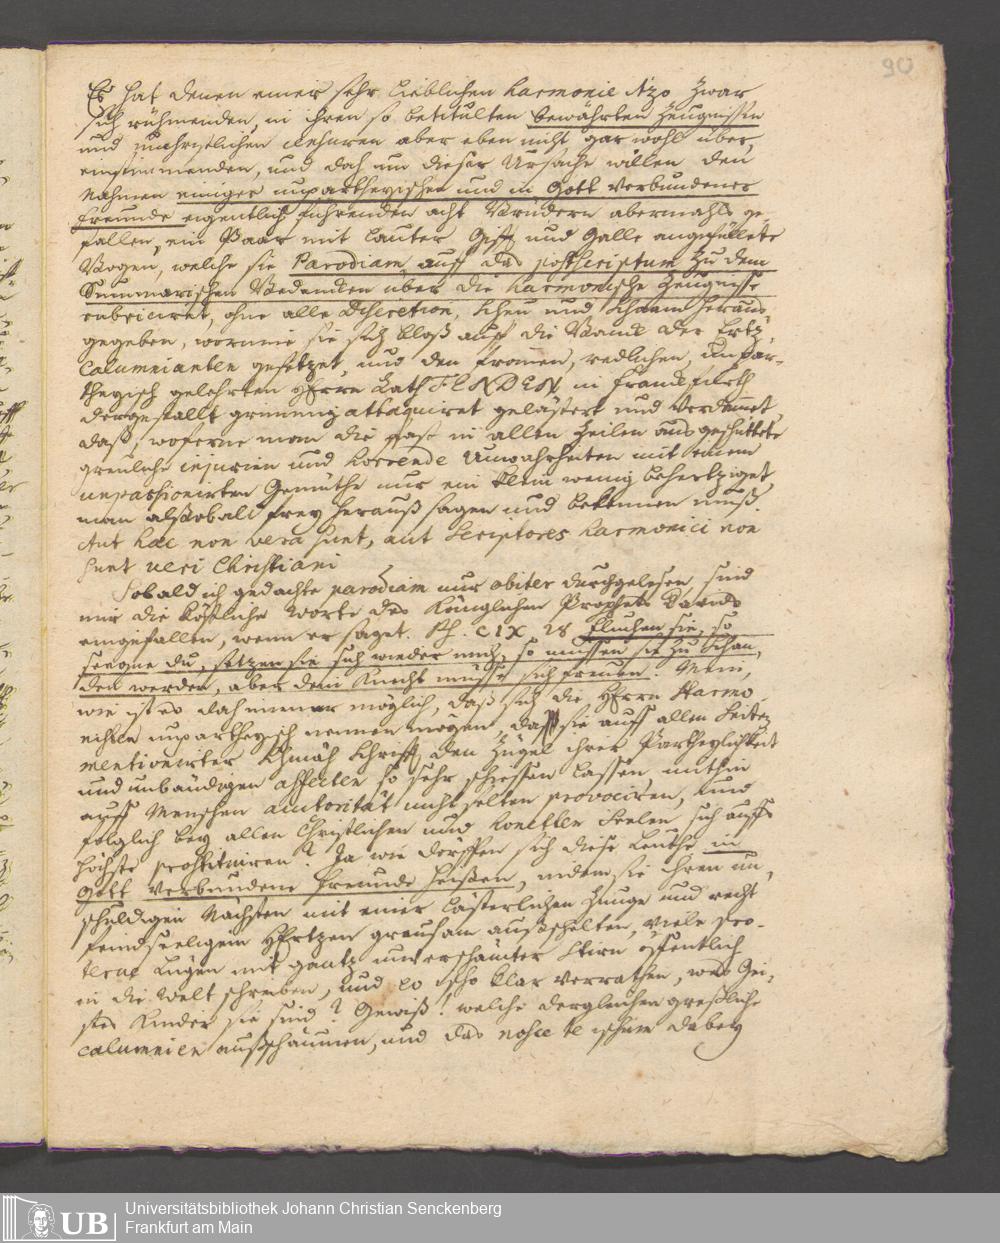 90
Es hat denen einer sehr lieblichen Harmonie itzo zwar
sich rühmenden, in ihren so betitulten bewährten Zeugnissen
und unchristlichen Censuren aber eben nicht gar wohl über,
einstimmenden, und doch um dieser Ursache willen den
Nahmen einiger unpartheyischer und in Gott verbundener
Freunde eigentlich führenden acht Brüdern abermahls ge
fallen, ein Paar mit lauter Gifft und Galle angefüllete
Bogen, welche sie Parodiam auff das postscriptum zu dem
Summarischen Bedencken über die harmonische Zeugnisse
rubriciret, ohne alle Discretion, Scheu und Schaam heraus
gegeben, worinne sie sich bloß auff die Banck der Ertz,
Calumnianten gesetzet, und den fromen, redlichen, unpar-
theyisch gelehrten Herrn Rath FENDEN in Franckfurth
dergestallt grimmig attaquiret gelästert und verdamet,
daß, woferne man die fast in allen Zeilen ausgeschüttete
greuliche injurien und horrende Unwahrheiten mit einem
unpassionirten Gemüthe nur ein klein wenig behertziget,
man alßobald frey herauß sagen und bekennen muß.
Aut haec non vera sunt, aut Scriptores harmonici non
sunt veri Christiani
Sobald ich gedachte parodiam nur obiter durchgelesen, sind
mir die köstliche Worte des Königlichen Propheten Davids
eingefallen, wenn er saget. Ps. CIX, 28 Fluchen sie, so
seegne du, setzen sie sich wieder mich, so müssen sie zu Schan,
den werden, aber dein Knecht müsse sich freuen. Mein,
wie ist es doch immer möglich, daß sich die Herrn Harmo
nisten unpartheyisch nennen mögen, daß sie auff allen Seiten
mentionirter Schmäh Schrifft den Zügel ihrer Partheylichkeit
und unbändigen affecten so sehr schiessen lassen, mithin
auff Menschen autorität nicht selten provociren, und
folglich bey allen Christlichen und honetten Seelen sich auffs
höchste prostituiren? Ja wie dörffen sich diese Leuthe in
Gott verbundene Freunde heißen, indem sie ihren un,
schuldigen Nächsten mit einer lästerlichen Zunge und recht
feindseeligem Hertzen grausam außschelten, viele pro-
terve Lügen mit gantz unverschämter Stirn öffentlich
in die Welt schreiben, und eo ipso klar verrathen, wes Gei,
stes Kinder sie sind? Gewiß! welche dergleichen greßliche
calumnien außschäumen, und das nosce te ipsum dabey
UB Universitätsbibliothek Johann Christian Senckenberg
Frankfurt am Main